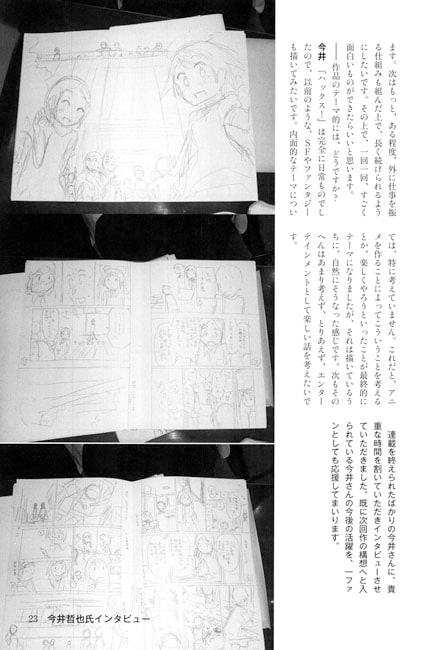 ます。次はもっと、ある程度、外に仕事を振
る仕組みも組んだ上で、長く続けられるよう
にしたいです。その上で、一回一回、すごく
面白いものができたらいいと思います。
――作品のテーマ的には、どうですか?
今井 「ハックス!」は完全に日常ものでし
たので、以前のような、SFやファンタジー
も描いてみたいです。内面的なテーマについ
ては、特に考えていません。これだと、アニ
メを作ることによってこういうことを考える
とか、楽しくやろうといったことが最終的に
テーマになりましたが、それは描いているう
ちに、自然にそうなった感じです。次もその
へんはあまり考えず、とりあえず、エンター
テインメントとして楽しい話を考えたいで
す。
連載を終えられたばかりの今井さんに、貴
重な時間を割いていただきインタビューさせ
ていただきました。既に次回作の構想へと入
られている今井さんの今後の活躍を、一ファ
ンとしても応援してまいります。
23 今井哲也氏インタビュー